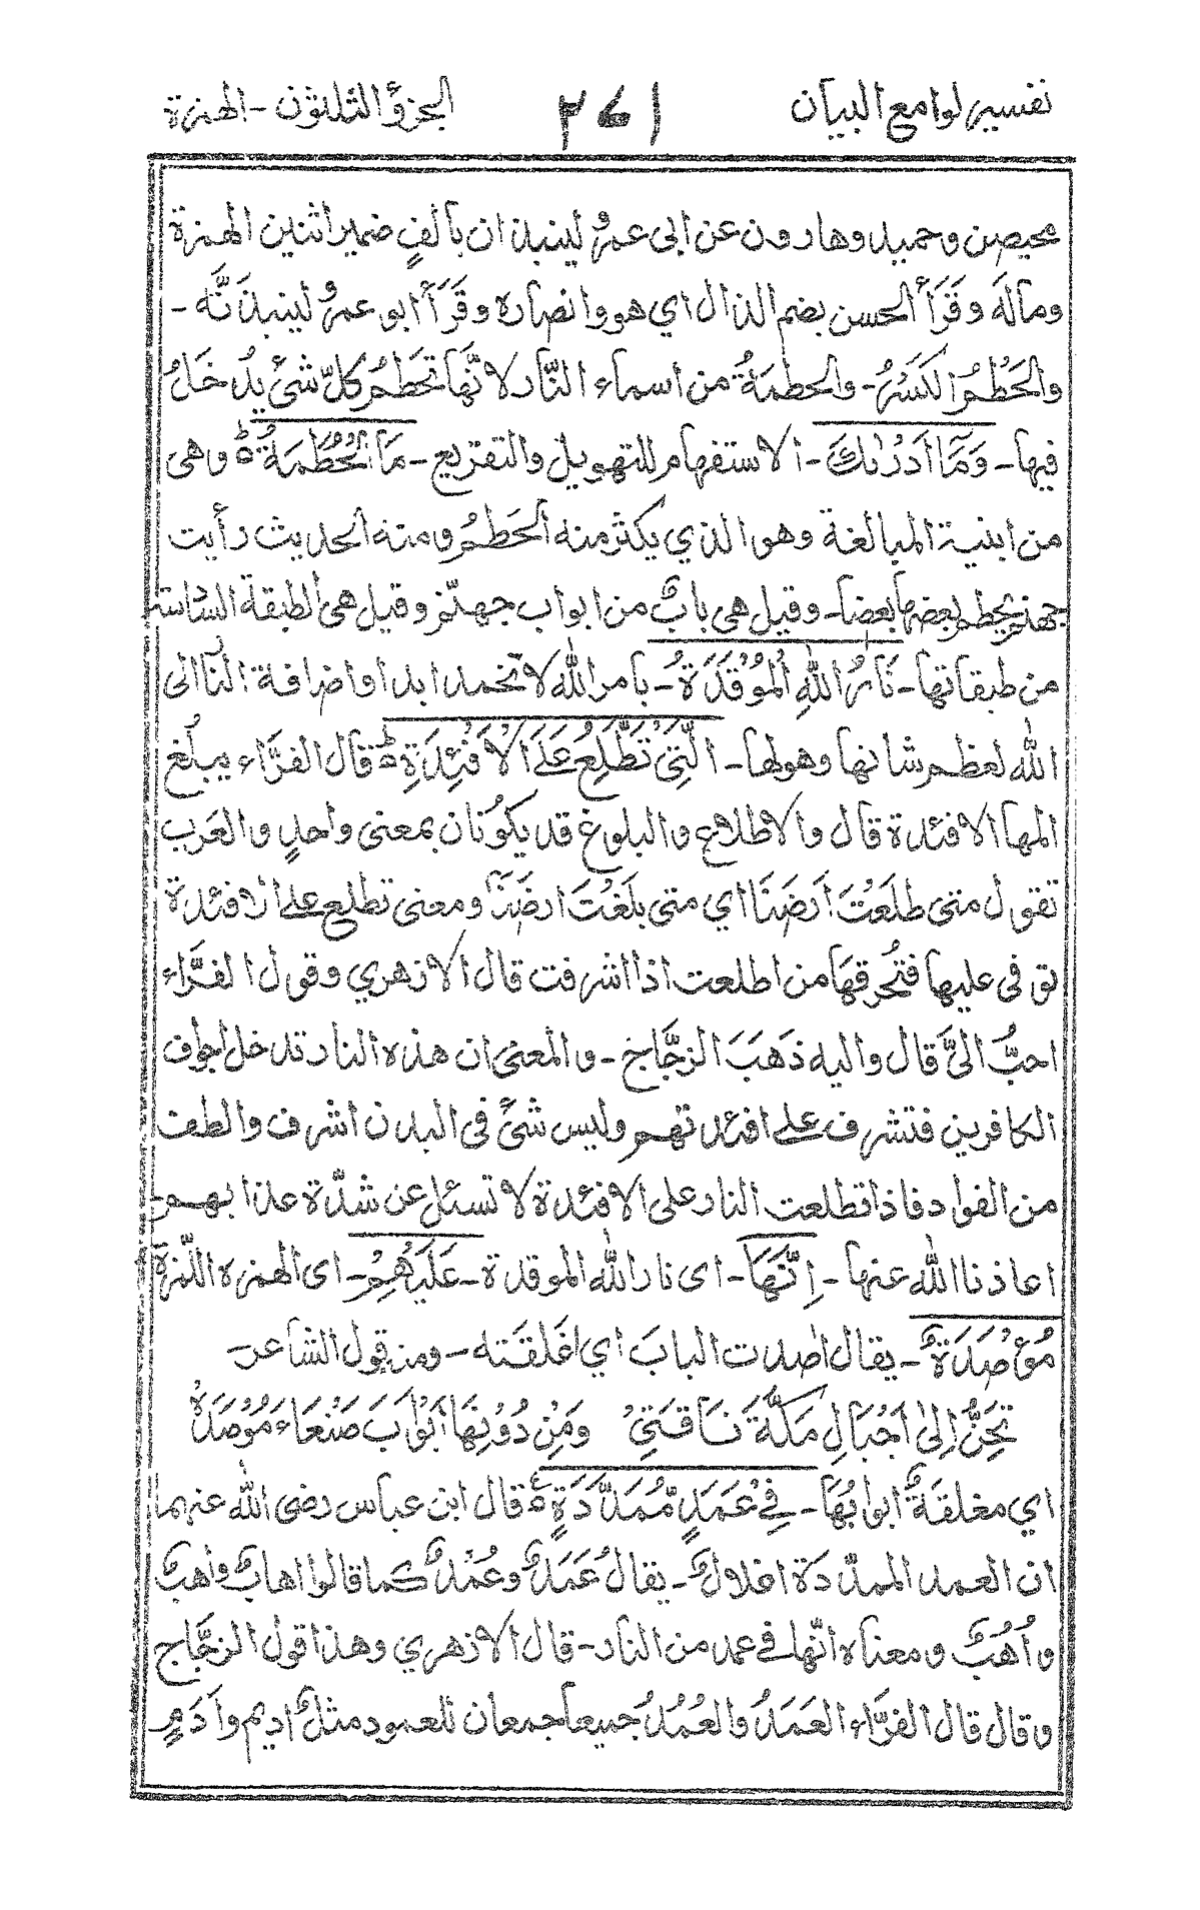 تفسير لوامع البيان ٢٤١ الجزؤ الثلثون - الهمزة
محيصن وحميد وهارون عن ابى عمرٌو لينبذان بالفٍ ضمير اثنين الهمزة
وماله وَقَرَأَ الحسن بضم الذال اي هو وانصاره وقَرَأَ ابو عمرٌو لينبذَنَّه -
والحَطْمُ الكَسْرُ - والحطمةُ من اسماء النّار لانّها تَحْطِمُ كلّ شئ يُدْخَلُ
فيها - وَمَآ اَدْرٰىكَ - الاستفهام للتهويل والتقريع - مَا الْحُطَمَةُ ط وهى
من ابنية المبالغة وهو الذي يكثر منه الحَطْمُ ومنه الحديث رأيت
جهنم يحطم بعضها بعضا - وقيل هى بابٌ من ابواب جهنّم وقيل هى الطبقة السادسة
من طبقاتها - نَارُ اللّٰهِ الْمُوْقَدَةُ - بامر اللّٰه لا تخمد ابدا واضافة النار الى
اللّٰه لعظم شانها وهولها - الَّتِىْ تَطَّلِعُ عَلَى الْاَفْئِدَةِ ط قال الفرّاء يبلغ
المها الافئدة قال والاطلاع والبلوغ قد يكونان بمعنى واحدٍ والعرب
تقول متى طلَعْتَ اَرْضَنَا اي متى بَلَغْتَ ارضَنَا ومعنى تطلع على الافئدة
توفى عليها فتُحرقهَا من اطلعت اذا اشرفت قال الازهري وقول الفرَّاء
احبُّ الىَّ قال واليه ذهَبَ الزجَّاج - والمعنى ان هذه النار تدخل اجواف
الكافرين فتشرف على افئدتهم وليس شئٌ فى البدن اشرف والطف
من الفواد فاذا تطلعت النار على الافئدة لا تسئل عن شدّة عذابهم
اعاذنا اللّٰه عنها - اِنَّهَا - اى نار اللّٰه الموقدة - عَلَيْهِمْ - اى الهمزه اللّمزة
مُؤْصَدَةٌ - يقال اٰصدت البابَ اي اغلقته - ومن قول الشاعر -
تَحِنُّ اِلىٰ اَجْبَالِ مَكَّةَ نَاقَتِىْ وَمِنْ دُوْنِهَا اَبْوَابَ صَنْعَاءَ مُوْصَدَةْ
اي مغلقةٌ ابوابُهَا - فِىْ عَمَدٍ مُّمَدَّدَةٍ ع قال ابن عباس رضى اللّٰه عنهما
ان العمد الممدّدة اغلالٌ - يقال عَمَدٌ وعُمُدٌ كما قالوا اهابٌ واَهَبٌ
واُهُبٌ ومعناه انّها فى عمد من النار - قال الازهري وهذا قول الزجَّاج
وقال قال الفرَّاء العَمَدُ والعُمُدُ جميعا جمعان للعمود مثل اديم واَدَمٍ